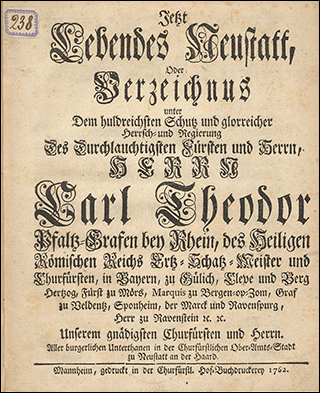 238
Jetzt
Lebendes Neustatt,
Oder
Verzeichnus
unter
Dem huldreichsten Schutz und glorreicher
Herrsch- und Regierung
Des Durchlauchtigsten Fürsten und Herrn,
HERRN
Carl Theodor
Pfaltz-Grafen bey Rhein, des Heiligen
Römischen Reichs Ertz-Schatz-Meister und
Churfürsten, in Bayern, zu Gülich, Cleve und Berg
Hertzog, Fürst zu Mörs, Marquis zu Bergen-op-Zom, Graf
zu Veldentz, Sponheim, der Marck und Ravenspurg,
Herr zu Ravenstein ꝛc. ꝛc.
Unserem gnädigsten Churfürsten und Herrn.
Aller burgerlichen Unterthanen in der Churfürstlichen Ober-Amts-Stadt
zu Neustatt an der Haard.
Mannheim, gedruckt in der Churfürstl. Hof-Buchdruckerey 1762.